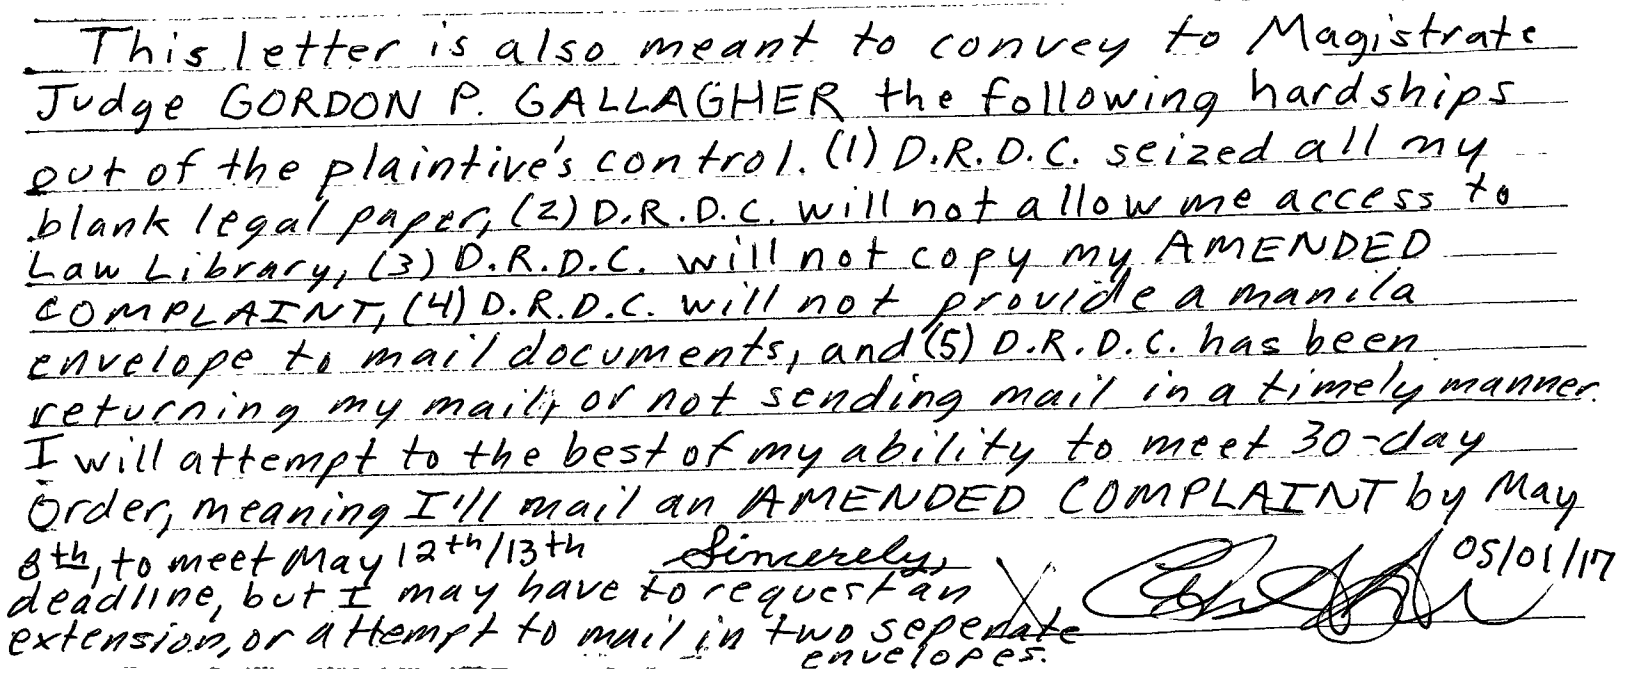 This letter is also meant to convey to Magistrate
Judge GORDON P. GALLAGHER the following hardships
out of the plaintive's control. (1) D.R.D.C. seized all my
blank legal paper, (2) D.R.D.C. will not allow me access to
Law Library, (3) D.R.D.C. will not copy my AMENDED
COMPLAINT, (4) D.R.D.C. will not provide a manila
envelope to mail documents, and (5) D.R.D.C. has been
returning my mail, or not sending mail in a timely manner.
I will attempt to the best of my ability to meet 30-day
Order, meaning I'll mail an AMENDED COMPLAINT by May
8th, to meet May 12th/13th Sincerely, 05/01/17
deadline, but I may have to request an X
extension, or attempt to mail in two seperate
envelopes.